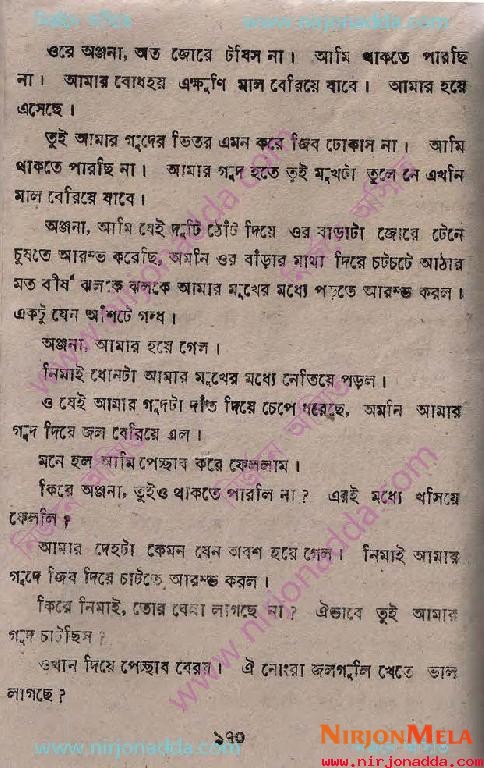 নির্জন মেলায় www.nirjonadda.com
ওরে অঞ্জনা, অত জোরে টিষিস না। আমি থাকতে পারছি
না। আমার বোধহয় এক্ষুণি মাল বেরিয়ে যাবে। আমার হয়ে
এসেছে।
তুই আমার গুদের ভিতর এমন করে জিব ঢোকাস না। আমি
থাকতে পারছি না। আমার গুদ হতে তুই মুখটা তুলে নে এখনি
মাল বেরিয়ে যাবে।
অঞ্জনা, আমি যেই দুটি ঠোঁট দিয়ে ওর বাড়াটা জোরে টেনে
চুষতে আরম্ভ করেছি, অমনি ওর বাঁড়ার মাথা দিয়ে চটচটে আঠার
মত বীর্য ঝলকে ঝলকে আমার মুখের মধ্যে পড়তে আরম্ভ করল।
একটু যেন আঁশটে গন্ধ।
অঞ্জনা, আমার হয়ে গেল।
নিমাই ধোনটা আমার মুখের মধ্যে নেতিয়ে পড়ল।
ও যেই আমার গুদটা দাঁত দিয়ে চেপে ধরেছে, অমনি আমার
গুদ দিয়ে জল বেরিয়ে এল।
মনে হল আমি পেচ্ছাব করে ফেললাম।
কিরে অঞ্জনা, তুইও থাকতে পারলি না? এরই মধ্যে খসিয়ে
ফেললি?
আমার দেহটা কেমন যেন অবশ হয়ে গেল। নিমাই আমার
গুদে জিব দিয়ে চাটতে আরম্ভ করল।
কিরে নিমাই, তোর ঘেন্না লাগছে না? ঐভাবে তুই আমার
গুদ চাটছিস?
ওখান দিয়ে পেচ্ছাব বেরয়। ঐ নোংরা জলগুলি খেতে ভাল
লাগছে?
১৭০
www.nirjonadda.com
NIRJONMELA
www.nirjonadda.com